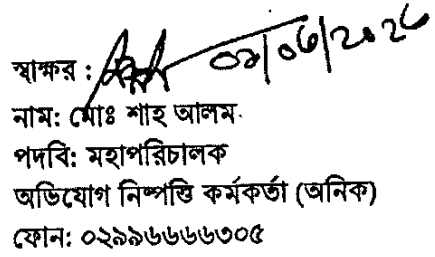 স্বাক্ষর : ০১/০৬/২০২৬
নাম: মোঃ শাহ আলম
পদবি: মহাপরিচালক
অভিযোগ নিষ্পত্তি কর্মকর্তা (অনিক)
ফোন: ০২৯৯৬৬৬৬৩০৫